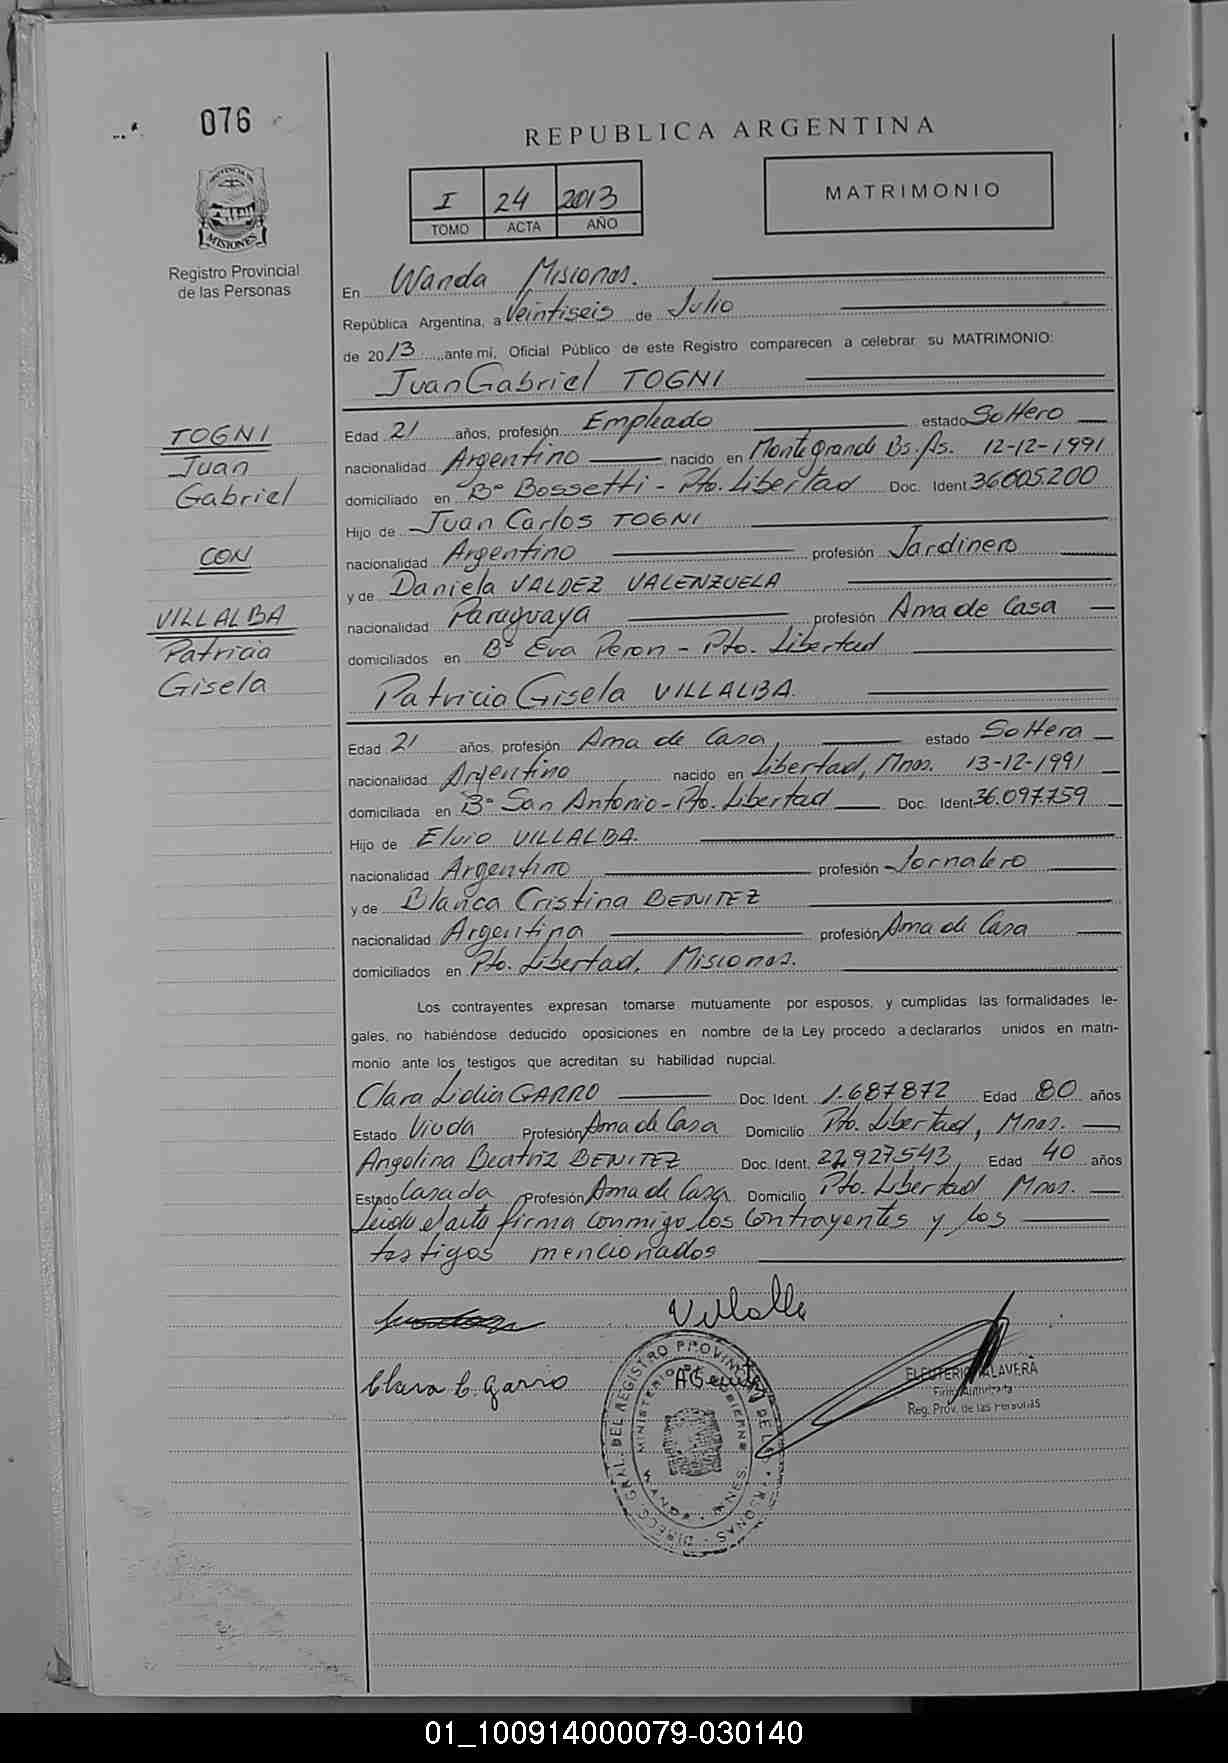 076
REPUBLICA ARGENTINA
I 24 2013
TOMO ACTA AÑO
MATRIMONIO
PROVINCIA DE
MISIONES
Registro Provincial
de las Personas
En Wanda Misiones.
República Argentina, a Veintiseis de Julio
de 2013 ante mí, Oficial Público de este Registro comparecen a celebrar su MATRIMONIO:
Juan Gabriel TOGNI
TOGNI
Juan
Gabriel
CON
VILLALBA
Patricia
Gisela
Edad 21 años, profesión Empleado estado Soltero
nacionalidad Argentino nacido en Monte grande Bs. As. 12-12-1991
domiciliado en Bº Bossetti - Pto. Libertad Doc. Ident 36.005.200
Hijo de Juan Carlos TOGNI
nacionalidad Argentino profesión Jardinero
y de Daniela VALDEZ VALENZUELA
nacionalidad Paraguaya profesión Ama de Casa
domiciliados en Bº Eva Peron - Pto. Libertad
Patricia Gisela VILLALBA.
Edad 21 años, profesión Ama de Casa, estado Soltera
nacionalidad Argentino nacido en Libertad, Mnes. 13-12-1991
domiciliada en Bº San Antonio - Pto. Libertad Doc. Ident 36.097.759
Hijo de Elvio VILLALBA.
nacionalidad Argentino profesión Jornalero
y de Blanca Cristina BENITEZ
nacionalidad Argentina profesión Ama de Casa
domiciliados en Pto. Libertad, Misiones.
Los contrayentes expresan tomarse mutuamente por esposos, y cumplidas las formalidades le-
gales, no habiéndose deducido oposiciones en nombre de la Ley procedo a declararlos unidos en matri-
monio ante los testigos que acreditan su habilidad nupcial.
Clara Lidia GARRO Doc. Ident. 1.687872 Edad 80 años
Estado Viuda Profesión Ama de Casa Domicilio Pto. Libertad, Mnes.
Angelina Beatriz BENITEZ Doc. Ident. 22.927.543, Edad 40 años
Estado Casada Profesión Ama de Casa Domicilio Pto. Libertad Mnes.
Leido el acta firma conmigo los Contrayentes y los
testigos mencionados
Villalba
Clara L. Garro
ABenitez
ELEUTERIO TALAVERA
Firma Autorizada
Reg. Prov. de las Personas
DIREC. GRAL. DEL REGISTRO PROVINCIAL DE LAS PERSONAS
MINISTERIO DE GOBIERNO
WANDA MISIONES
01_100914000079-030140